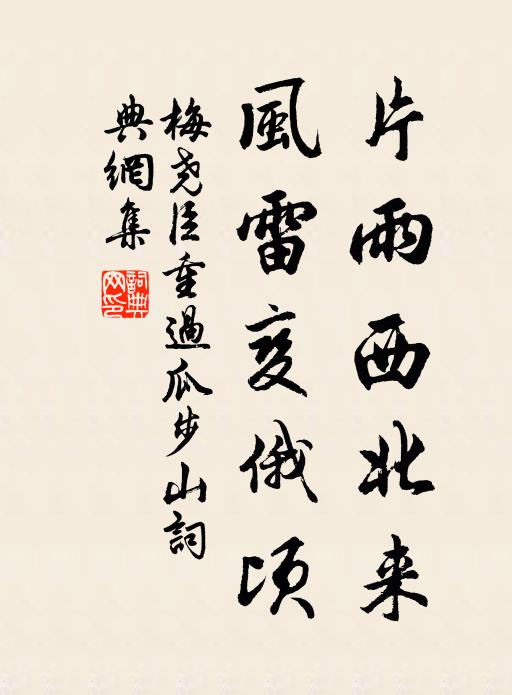 片雨西北来
風雷变俄頃
梅尧臣重過瓜步山詞
典網集
詞典網印